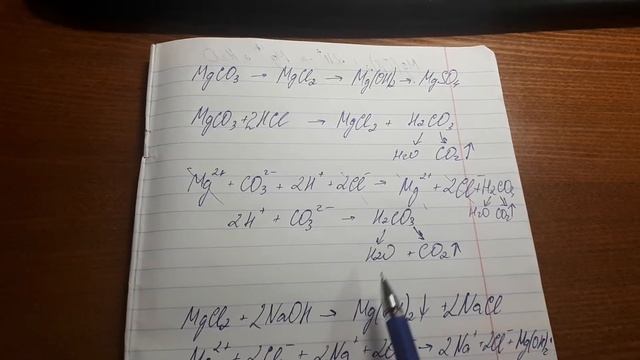 MgCO₃ → MgCl₂ → Mg(OH)₂ → MgSO₄
MgCO₃ + 2HCl → MgCl₂ + H₂CO₃
H₂O CO₂↑
Mg²⁺ + CO₃²⁻ + 2H⁺ + 2Cl⁻ → Mg²⁺ + 2Cl⁻ + H₂CO₃
H₂O CO₂↑
2H⁺ + CO₃²⁻ → H₂CO₃
H₂O + CO₂↑
MgCl₂ + 2NaOH → Mg(OH)₂↓ + 2NaCl
Mg²⁺ + 2Cl⁻ + 2Na⁺ + 2 → 2Na⁺ + 2Cl⁻ + Mg(OH)